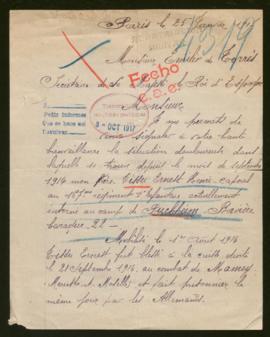 Paris le 25 Janvier 191
43519
Monsieur Emilio de Torrès
Secrétaire de Sa Majesté le Roi d'Espagne
Fecho
Monsieur
Je me permets de
vous signaler à votre haute
bienveillance la situation douloureuse dans
laquelle se trouve depuis le mois de septembre
1914 mon frère Tisser Ernest Henri caporal
au 167e régiment d'Infanterie actuellement
interné au camp de Puchheim Bavière
baraque 22
3 OCT 1917
Mobilisé le 1er Août 1914
Tisser Ernest fut blessé à la cuisse droite
le 21 Septembre 1914 au combat de Mamey
Meurthe et Moselle et fait prisonnier le
même jour par les Allemands.